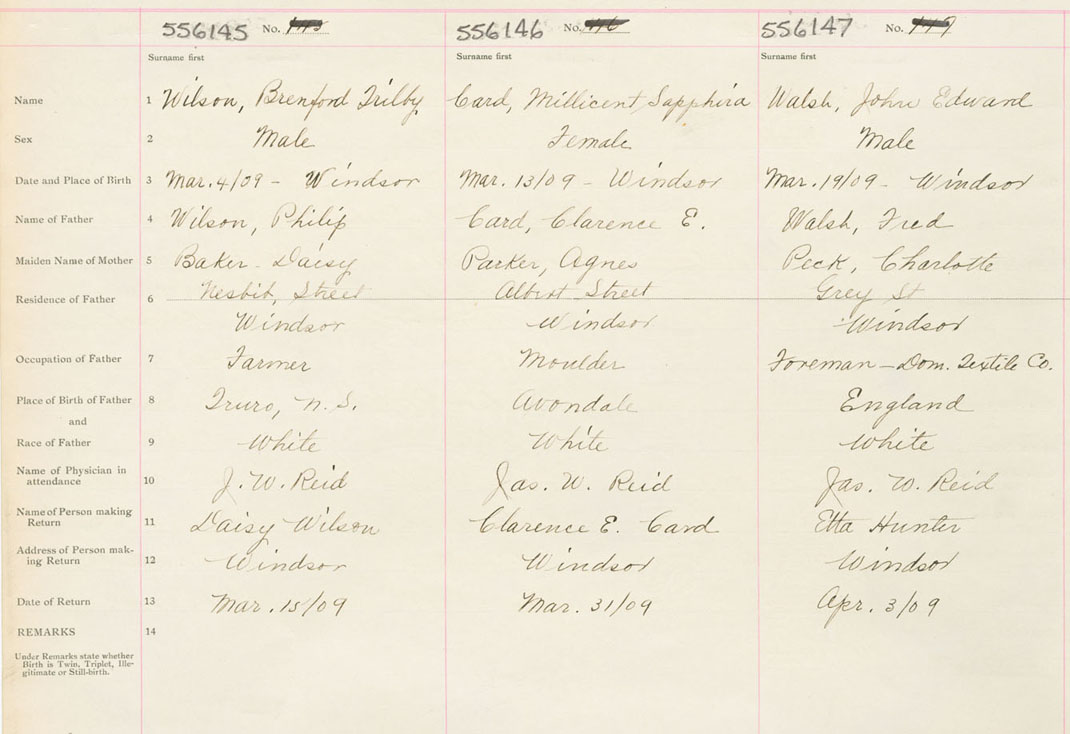 556145 No. 556146 No. 556147 No.
Surname first Surname first Surname first
Name 1 Wilson, Brenford Trilby Card, Millicent Sapphira Walsh, John Edward
Sex 2 Male Female Male
Date and Place of Birth 3 Mar. 4/09 - Windsor Mar. 13/09 - Windsor Mar. 19/09 - Windsor
Name of Father 4 Wilson, Philip Card, Clarence E. Walsh, Fred
Maiden Name of Mother 5 Baker - Daisy Parker, Agnes Peck, Charlotte
Residence of Father 6 Nesbit, Street Albert Street Grey St
Windsor Windsor Windsor
Occupation of Father 7 Farmer Moulder Foreman - Dom. Textile Co.
Place of Birth of Father 8 Truro, N.S. Avondale England
and
Race of Father 9 White White White
Name of Physician in
attendance 10 J. W. Reid Jas. W. Reid Jas. W. Reid
Name of Person making
Return 11 Daisy Wilson Clarence E. Card Etta Hunter
Address of Person mak-
ing Return 12 Windsor Windsor Windsor
Date of Return 13 Mar. 15/09 Mar. 31/09 Apr. 3/09
REMARKS 14
Under Remarks state whether
Birth is Twin, Triplet, Ille-
gitimate or Still-birth.